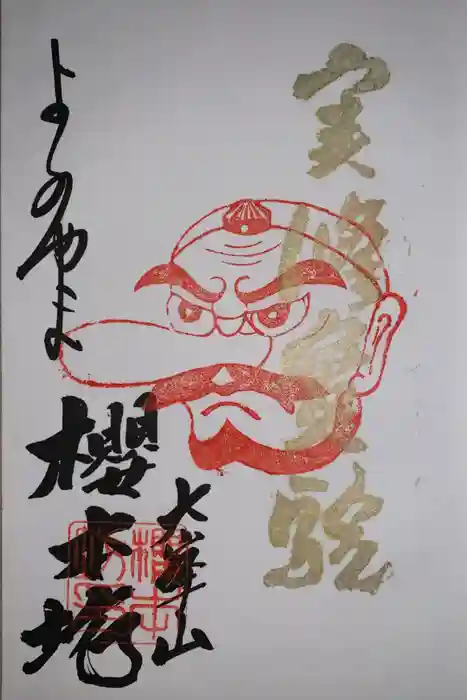 実修実験
大峯山
よしのやま
櫻本坊